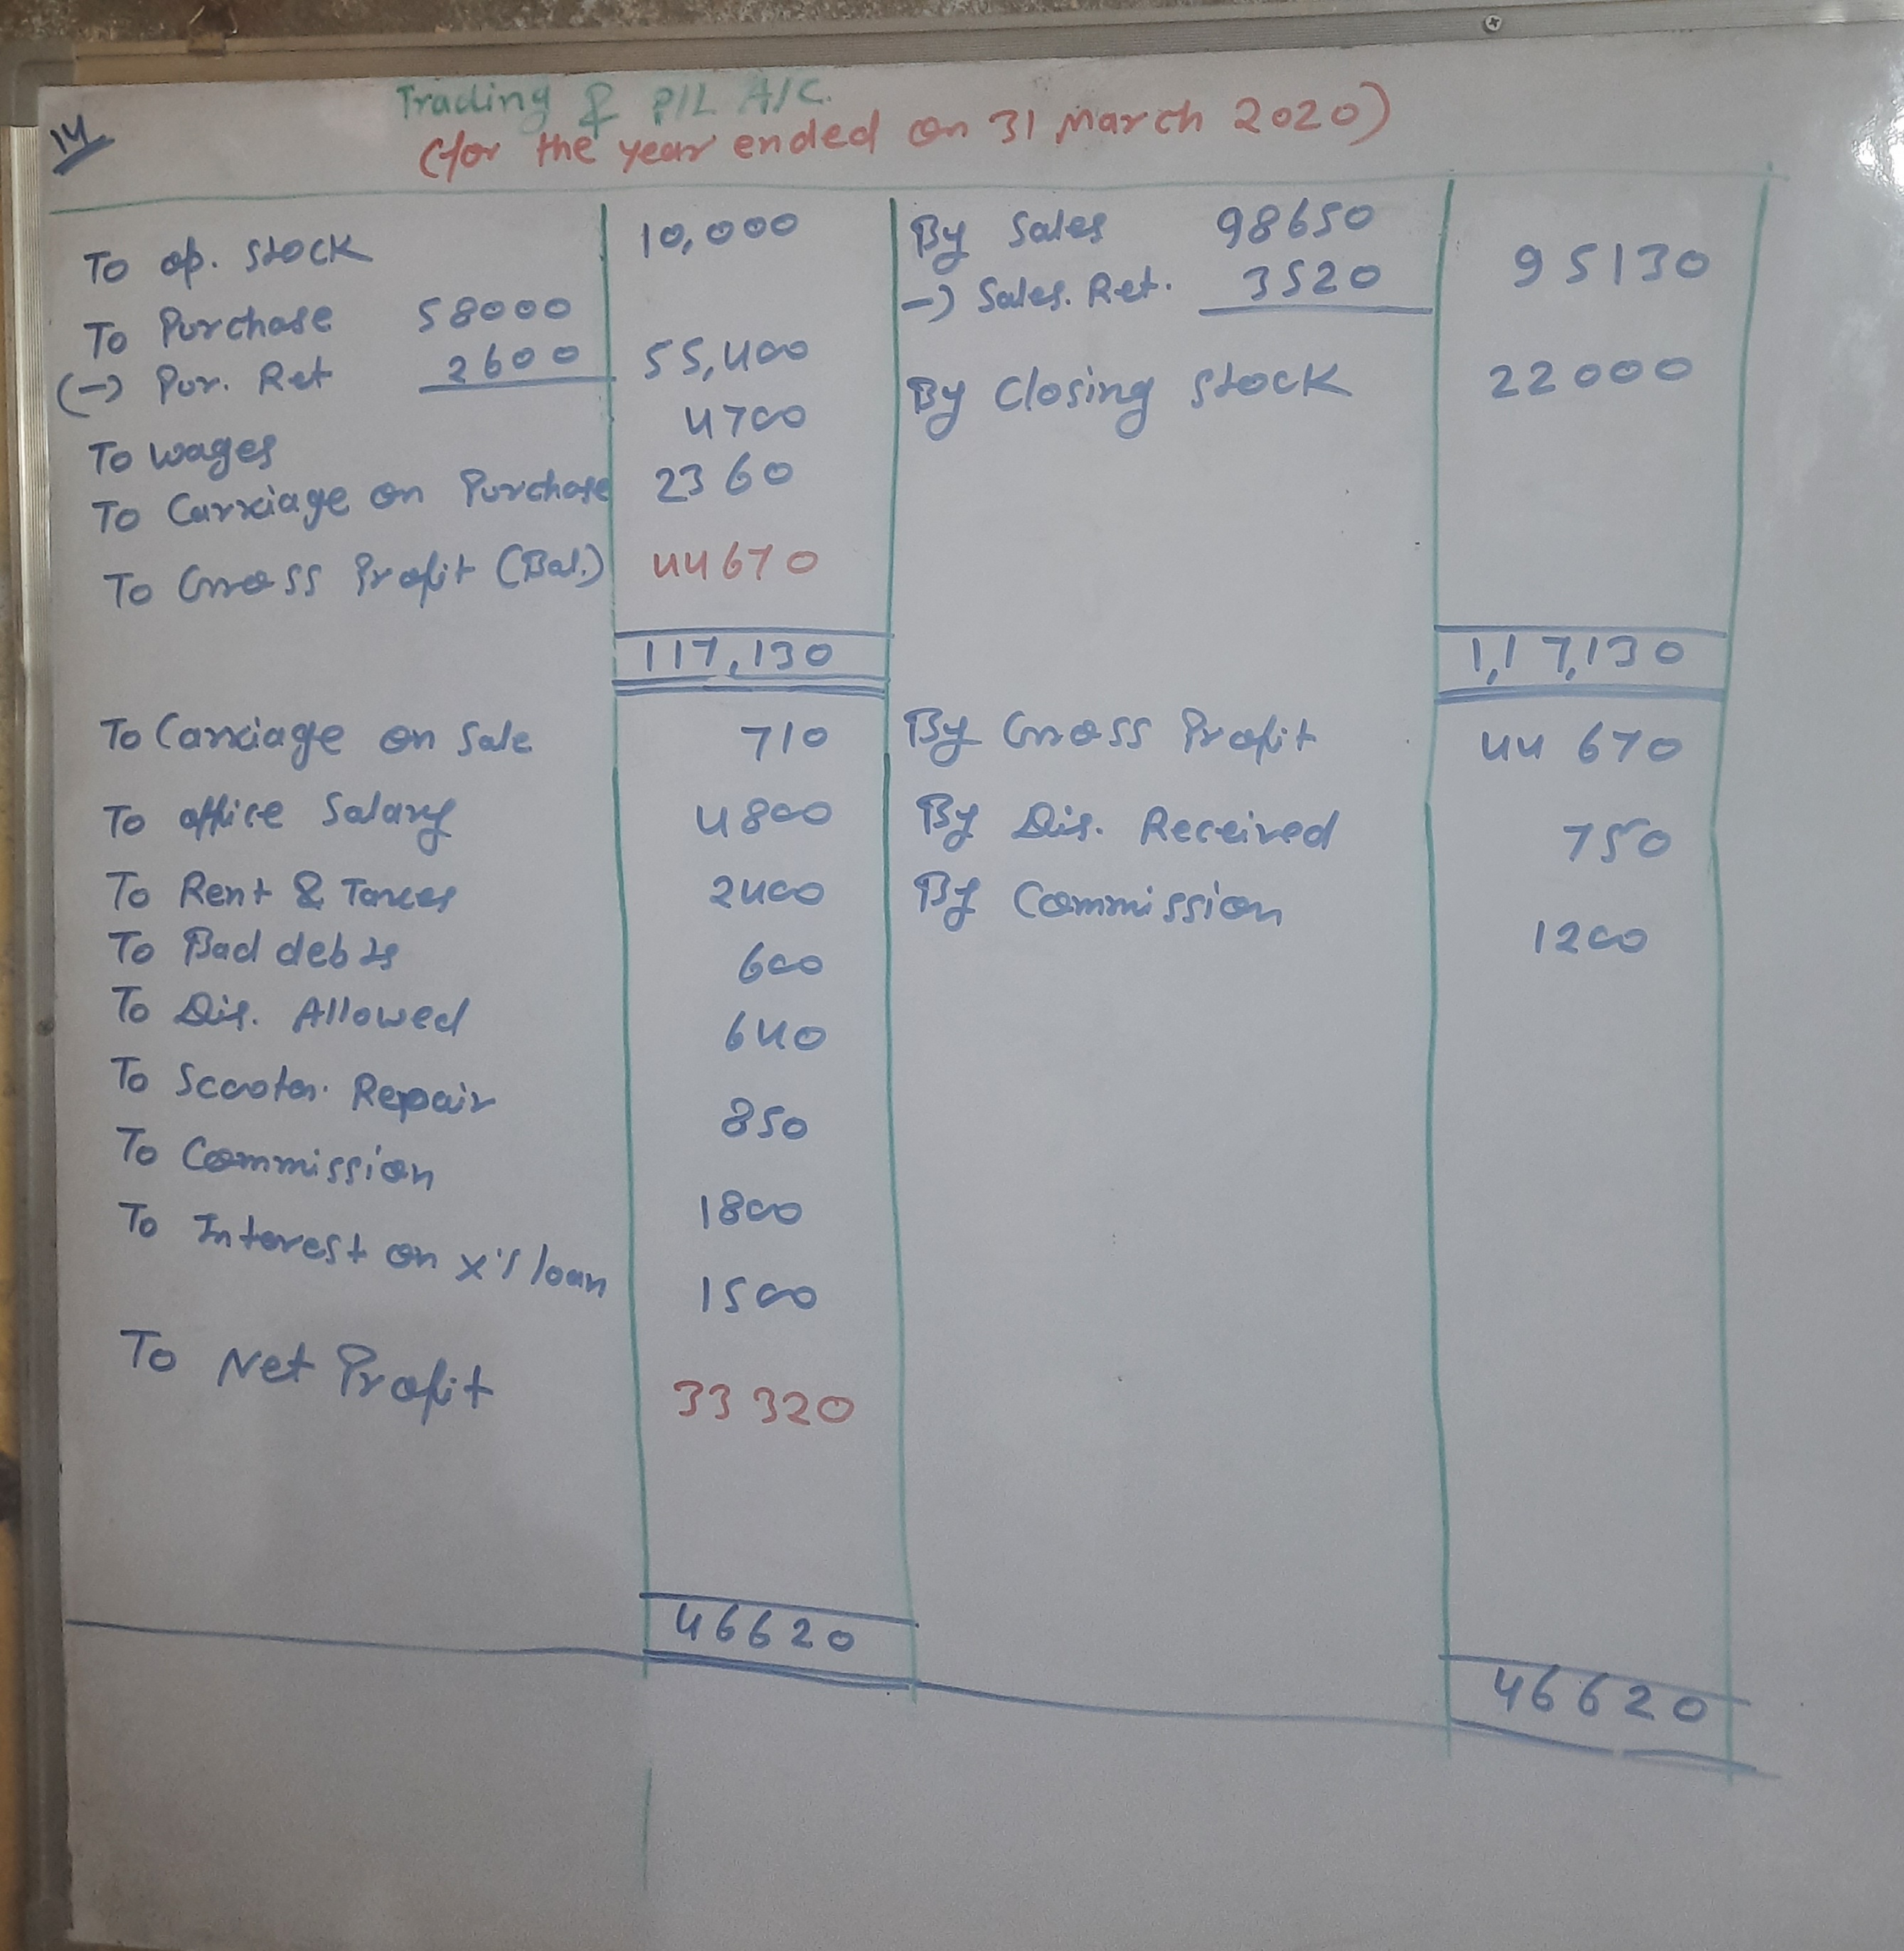 14
Trading & P/L A/C.
(for the year ended on 31 March 2020)
To op. stock 10,000
To Purchase 58000
(-) Pur. Ret 2600 55,400
To wages 4700
To Carriage on Purchase 2360
To Gross Profit (Bal.) 44670
117,130
By Sales 98650
-) Sales. Ret. 3520 95130
By Closing stock 22000
1,17,130
To Carriage on Sale 710
To office Salary 4800
To Rent & Taxes 2400
To Bad debts 600
To Dis. Allowed 640
To Scooter. Repair 850
To Commission 1800
To Interest on x's loan 1500
To Net Profit 33320
46620
By Gross Profit 44670
By Dis. Received 750
By Commission 1200
46620